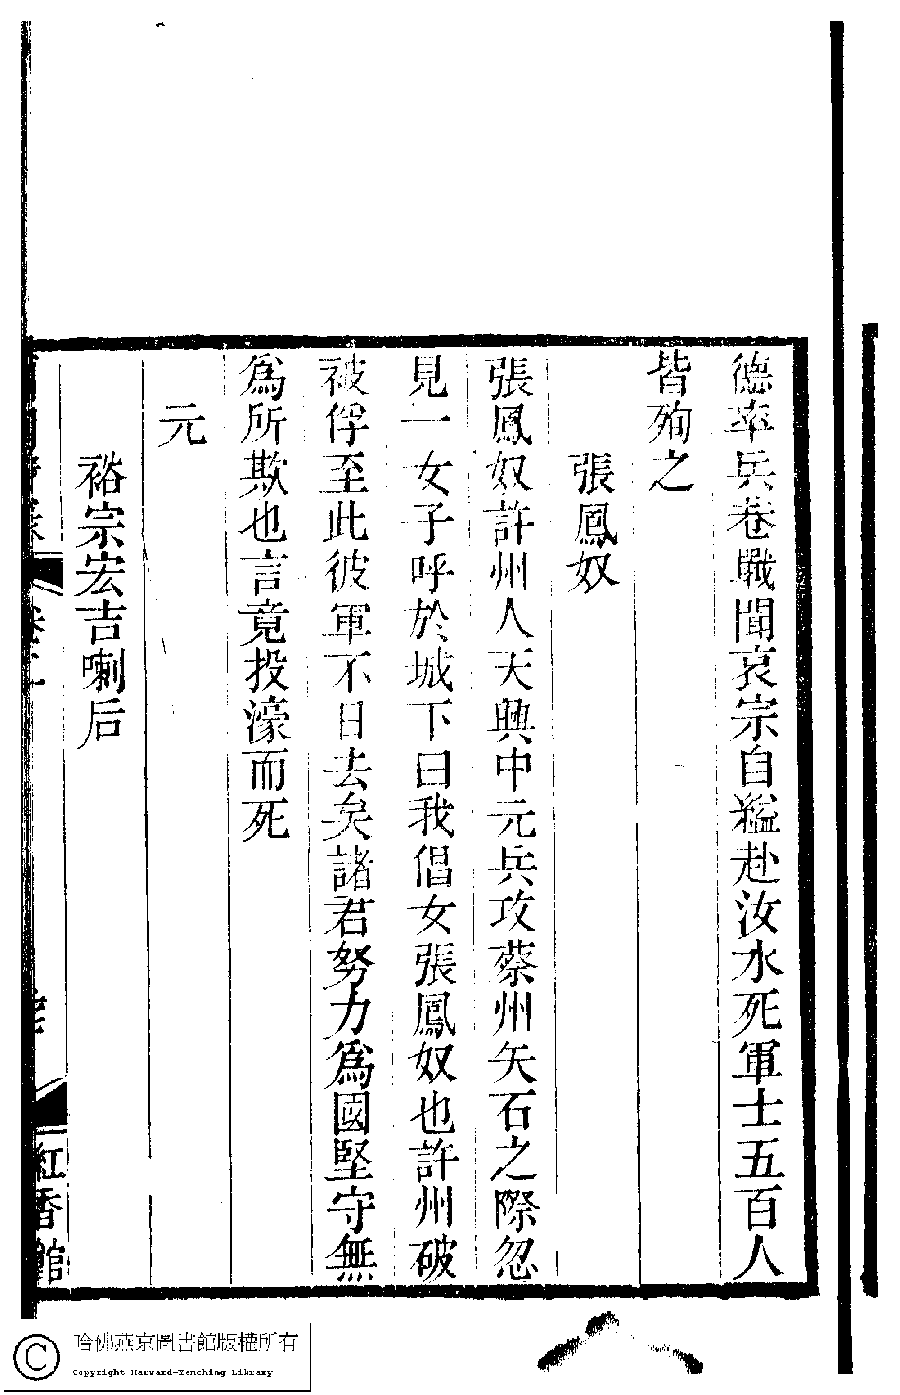 德率兵巷戰聞哀宗自縊赴汝水死軍士五百人
皆殉之
張鳳奴
張鳳奴許州人天興中元兵攻蔡州矢石之際忽
見一女子呼於城下曰我倡女張鳳奴也許州破
被俘至此彼軍不日去矣諸君努力爲國堅守無
爲所欺也言竟投濠而死
元
裕宗宏吉喇后
紅香館
哈佛燕京圖書館版權所有
Copyright Harvard-Yenching Library